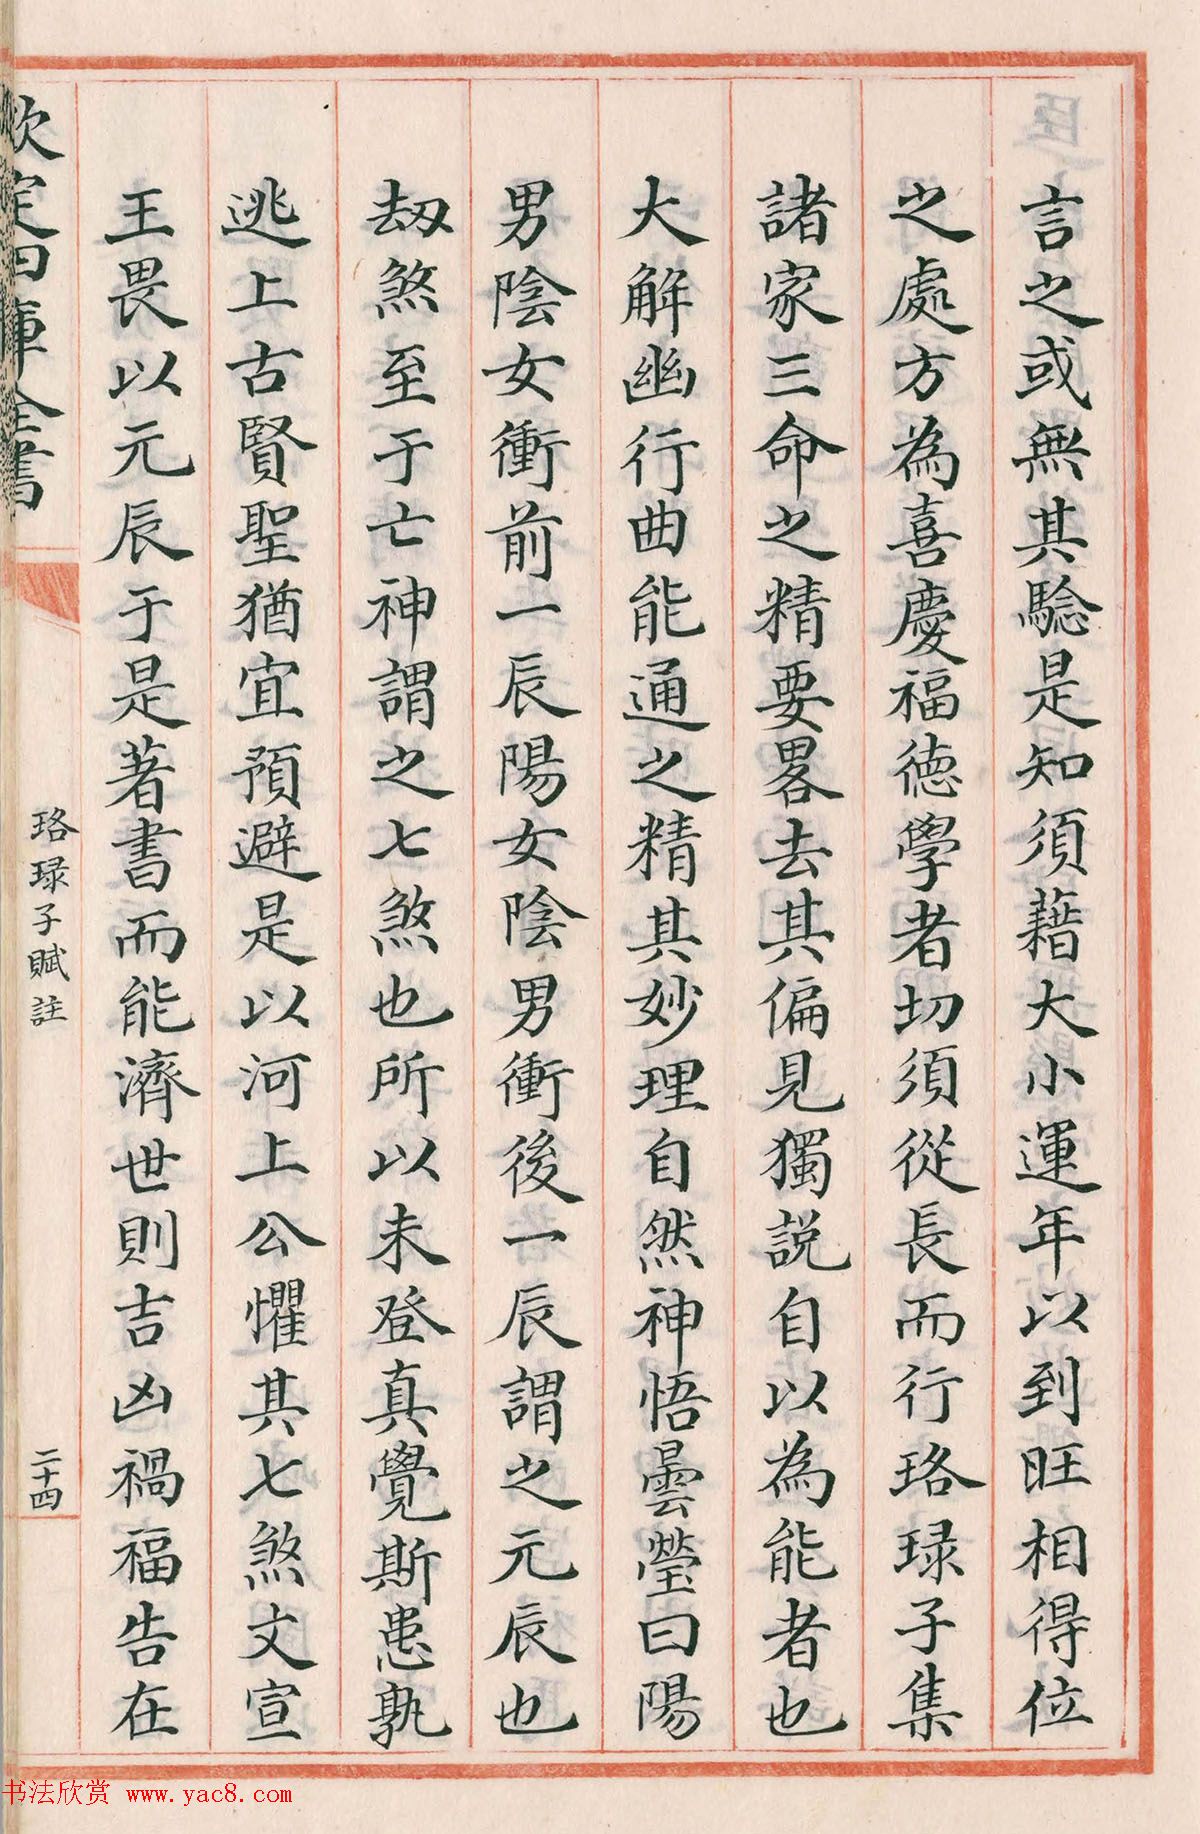 言之或無其騐是知須藉大小運年以到旺相得位
之處方為喜慶福德學者切須從長而行珞琭子集
諸家三命之精要畧去其偏見獨説自以為能者也
大解幽行曲能通之精其妙理自然神悟曇瑩曰陽
男陰女衝前一辰陽女陰男衝後一辰謂之元辰也
劫煞至于亡神謂之七煞也所以未登真覺斯患孰
逃上古賢聖猶宜預避是以河上公懼其七煞文宣
王畏以元辰于是著書而能濟世則吉凶禍福告在
欽定四庫全書
珞琭子賦註
二十四
书法欣赏 www.yac8.com